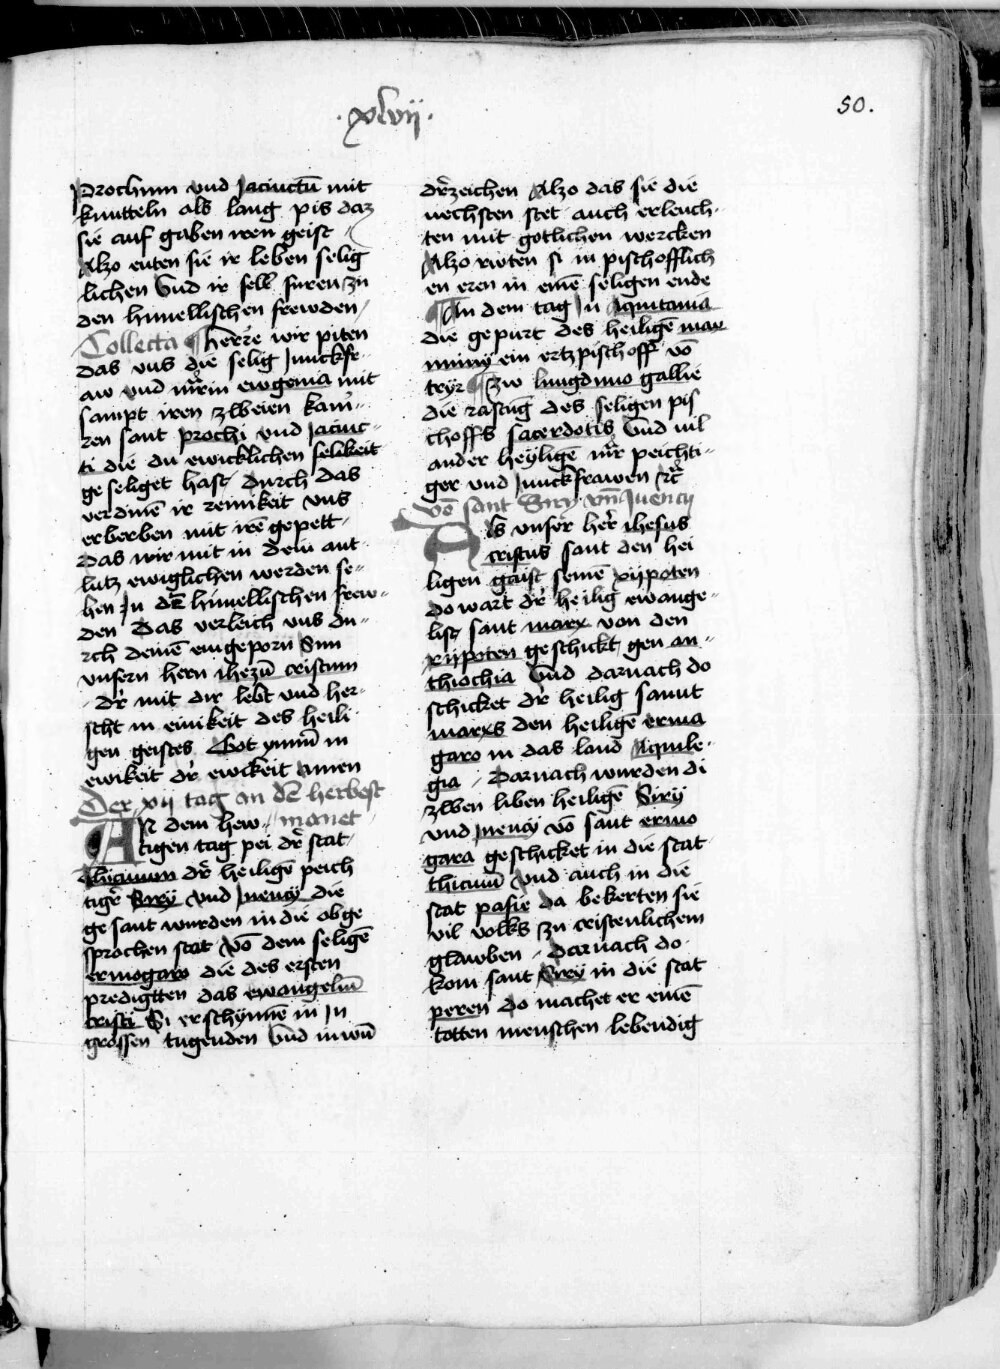 ·xlvij·
50.
Prochum vnd Jacinctū mit
knutteln als lang pis daz
sie auf gaben iren geist
Alzo enten sie ir leben selig
lichen Vnd ir sell' furen zu
den himellischen frewden
Collecta herre wir piten
das vns die selig Junckfr-
aw vnd mr̄rin ewgenia mit
sampt iren zweien kam̄-
ren sant prochi vnd Jacinc-
ti die du ewicklichen selikeit
geseliget hast durch das
verdinē ir reinikeit vns
erberben mit irē gepett
das wir mit in dein ant
lutz ewiglichen werden se-
hen Jn dē himellischen frew-
den Das verleich vns du-
rch deinē eingeporn Sun
vnsern hern ihezū cristum
dr̄ mit dir lebt vnd her-
scht in einikeit des heili
gen geistes Got ymm̄ in
ewikeit dr̄ ewikeit Amen
Der xij tag an dē herbest
monet
An dem hew-
tigen tag pei dr̄ stat
thicinum dr̄ heiligē peich
tigr̄ Sirÿ vnd Jnencÿ die
gesant wurden in die obge
sprochen stat Vō dem seligē
ermogaro die des ersten
predigtten das ewangeliū
cristi Si erschynnē in Jn
grossen tugenden Vnd in wū
dr̄zeichen Alzo das sie die
nechsten stet auch erleuch-
ten mit gotlichen wercken
Alzo rwten si in pischofflich
en eren in einē seligen ende
An dem tag Jn Aquitania
die gepurt des heiligē max
iminÿ ein ertzpischoff vō
treyr zw lungduno gallie
die rastūg des seligen pis
choffs sacerdotis Vnd vil
ander heyligē mr̄ peichti-
ger vnd Junckfrawen etc̄
Vō sant Siry vn̄ Juency
Als vnser her̄ ihesus
cristus sant den hei
ligen geist seinē xijpoten
do wart dr̄ heilig ewange-
list sant marx von den
xijpoten geschickt gen an-
thiochia Vnd darnach do
schicket dr̄ heilig sannt
marxs den heiligē erma
garo in das land Aquile-
gia Darnach wurden di
zwen liben heiligē Sirÿ
vnd Jnencÿ vō sant ermo
gara geschicket in die stat
thicinū Vnd auch in die
stat pasie da bekerten sie
vil volks zu cristenlichem
glawben Darnach do
kom sant Sirÿ in die stat
peren do machet er einē
totten menschen lebendig